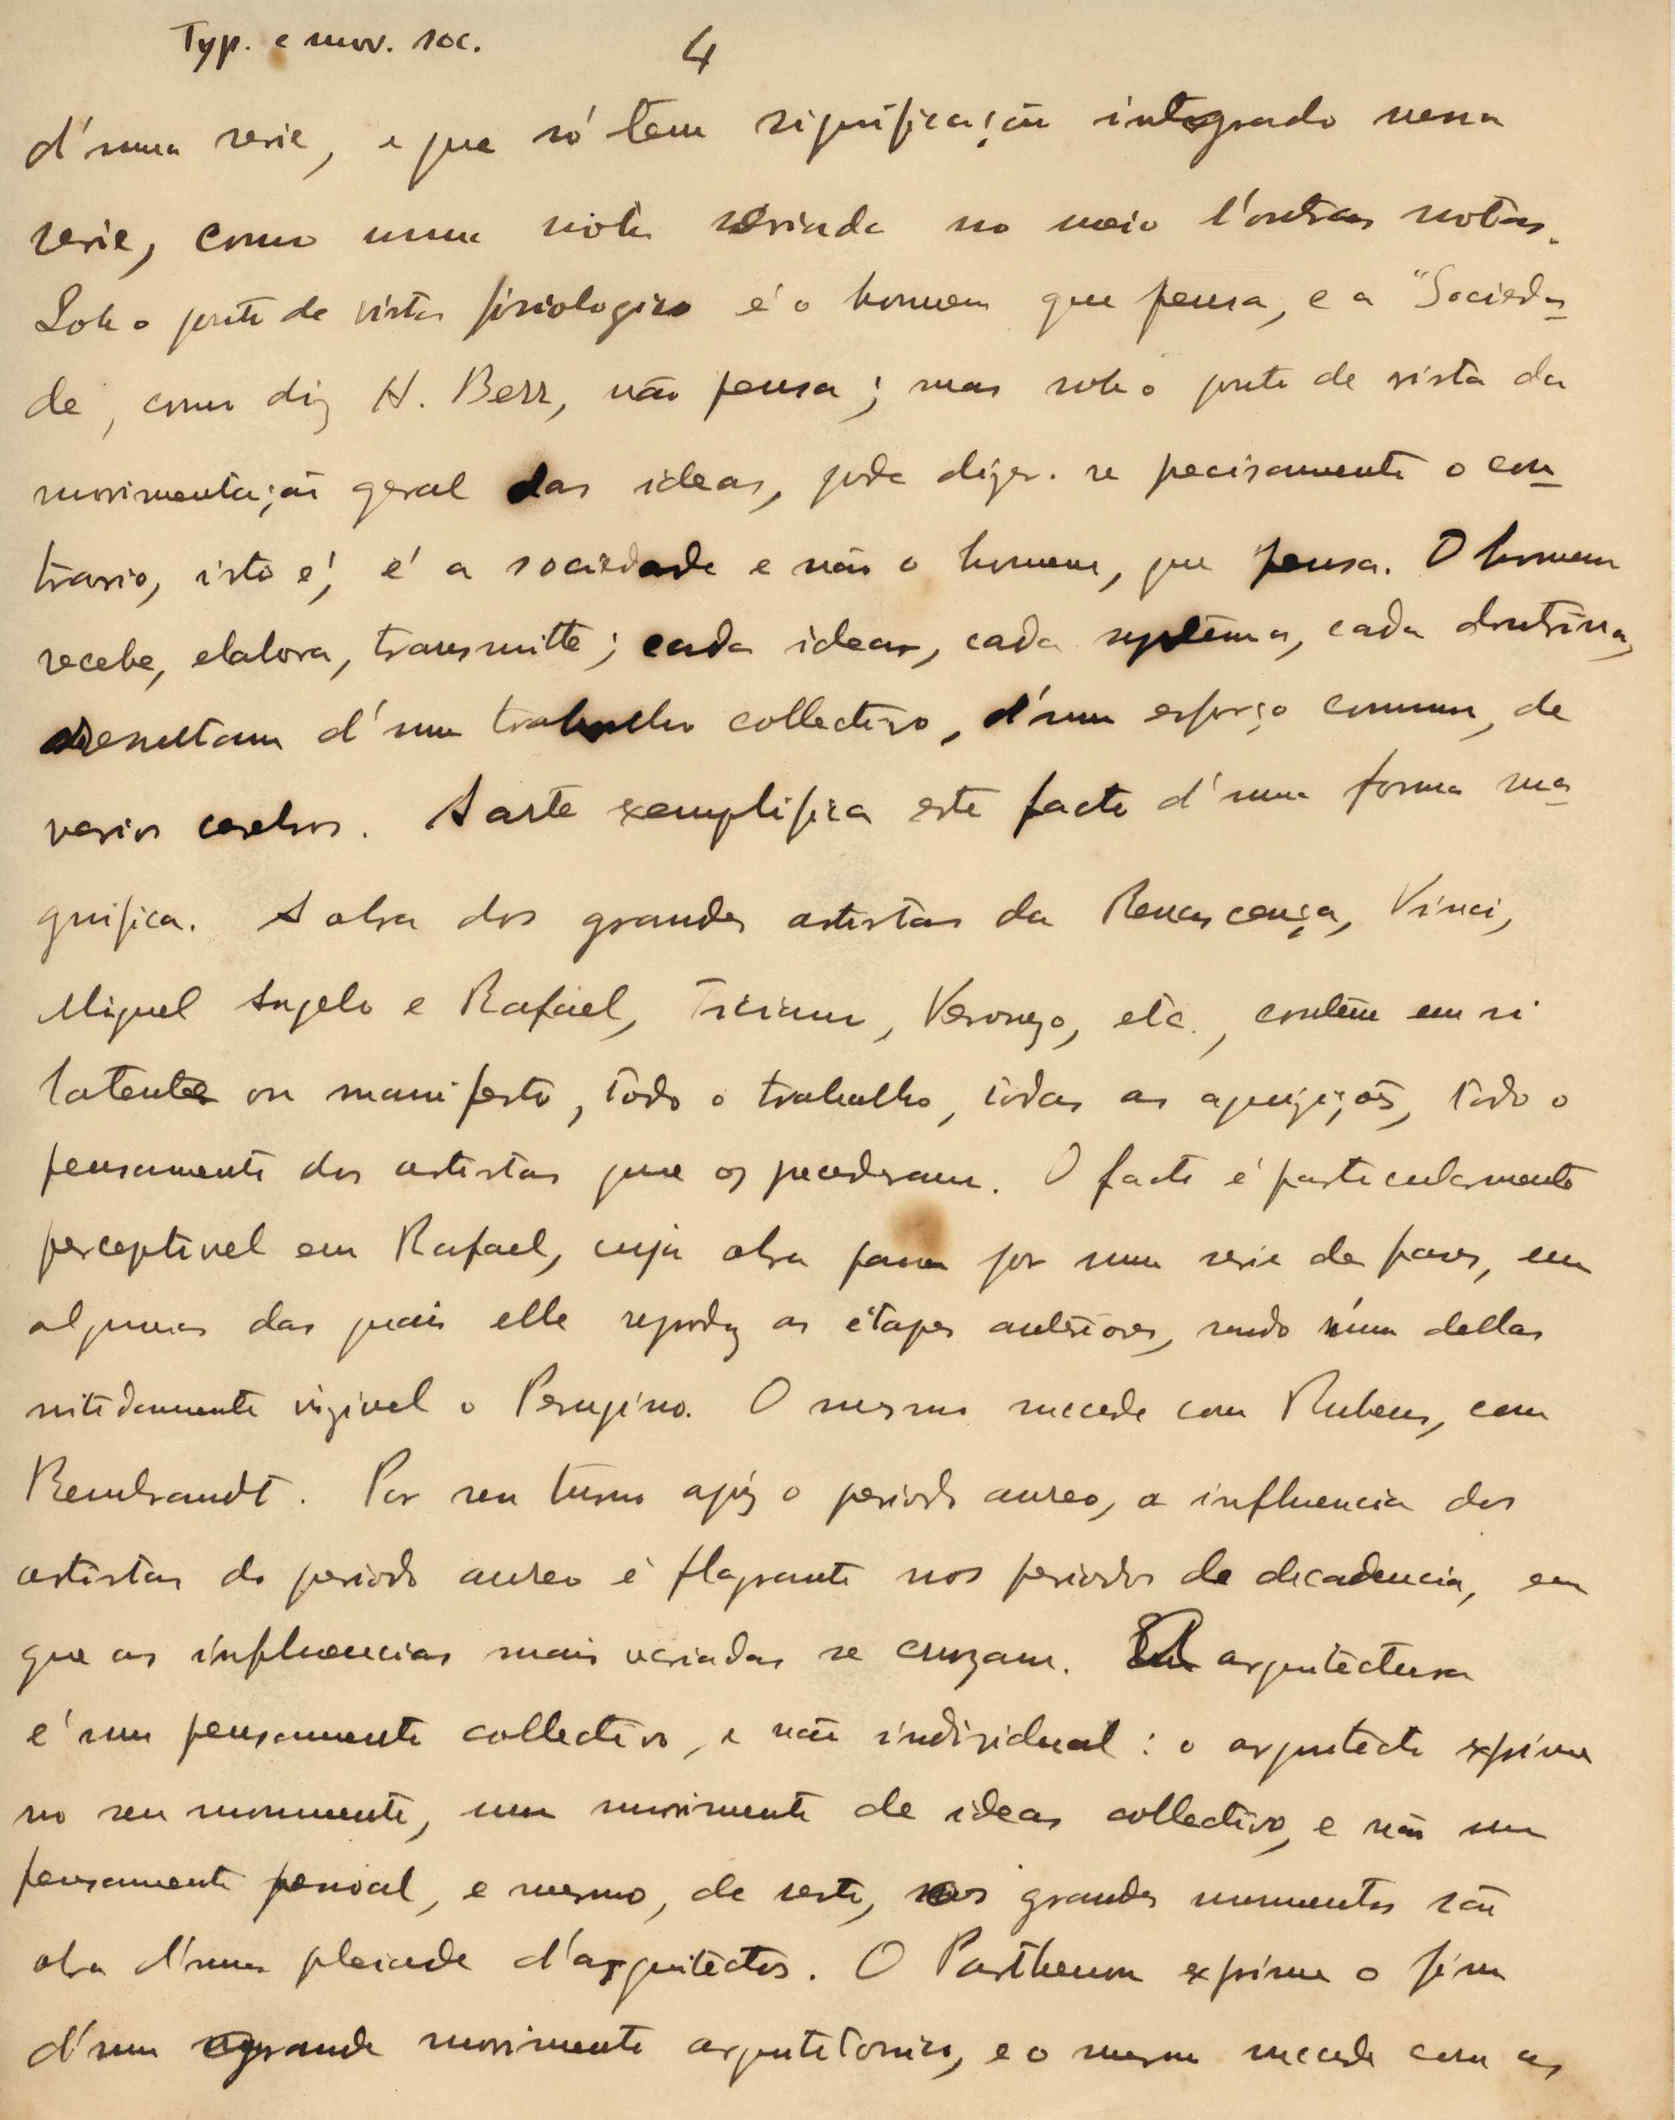 Typ. e mov. soc. 4
d'uma serie, e que só tem significação integrado nessa
serie, como uma nota seriada no meio d'outras notas.
Sob o ponto de vista fisiologico é o homem que pensa, e a "Socieda-
de, como diz H. Berr, não pensa; mas sob o ponto de vista da
movimentação geral das ideas, pode dizer-se precisamente o con-
trario, isto é, é a sociedade e não o homem, que pensa. O homem
recebe, elabora, transmitte; cada idea, cada systema, cada doutrina,
resultam d'um trabalho collectivo, d'um esforço commum, de
varios cerebros. A arte exemplifica este facto d'uma forma ma-
gnifica. A obra dos grandes artistas da Renascença, Vinci,
Miguel Angelo e Rafael, Ticiano, Veronezo, etc., contêm em si
latente ou manifesto, todo o trabalho, todas as aquizições, todo o
pensamento dos artistas que os precederam. O facto é particularmente
perceptivel em Rafael, cuja obra passa por uma serie de fases, em
algumas das quais elle reproduz as étapes anteriores, sendo n'uma dellas
nitidamente vizivel o Perugino. O mesmo succede com Rubens, com
Rembrandt. Por seu turno apóz o periodo aureo, a influencia dos
artistas do periodo aureo é flagrante nos periodos de decadencia, em
que as influencias mais variadas se cruzam. A arquitectura
é um pensamento collectivo, e não individual: o arquitecto exprime
no seu monumento, um movimento de ideas collectivo, e não um
pensamento pessoal, e mesmo, de resto, os grandes monumentos são
obra d'uma pleiade d'arquitectos. O Parthenon exprime o fim
d'um grande movimento arquitetonico, e o mesmo succede com as